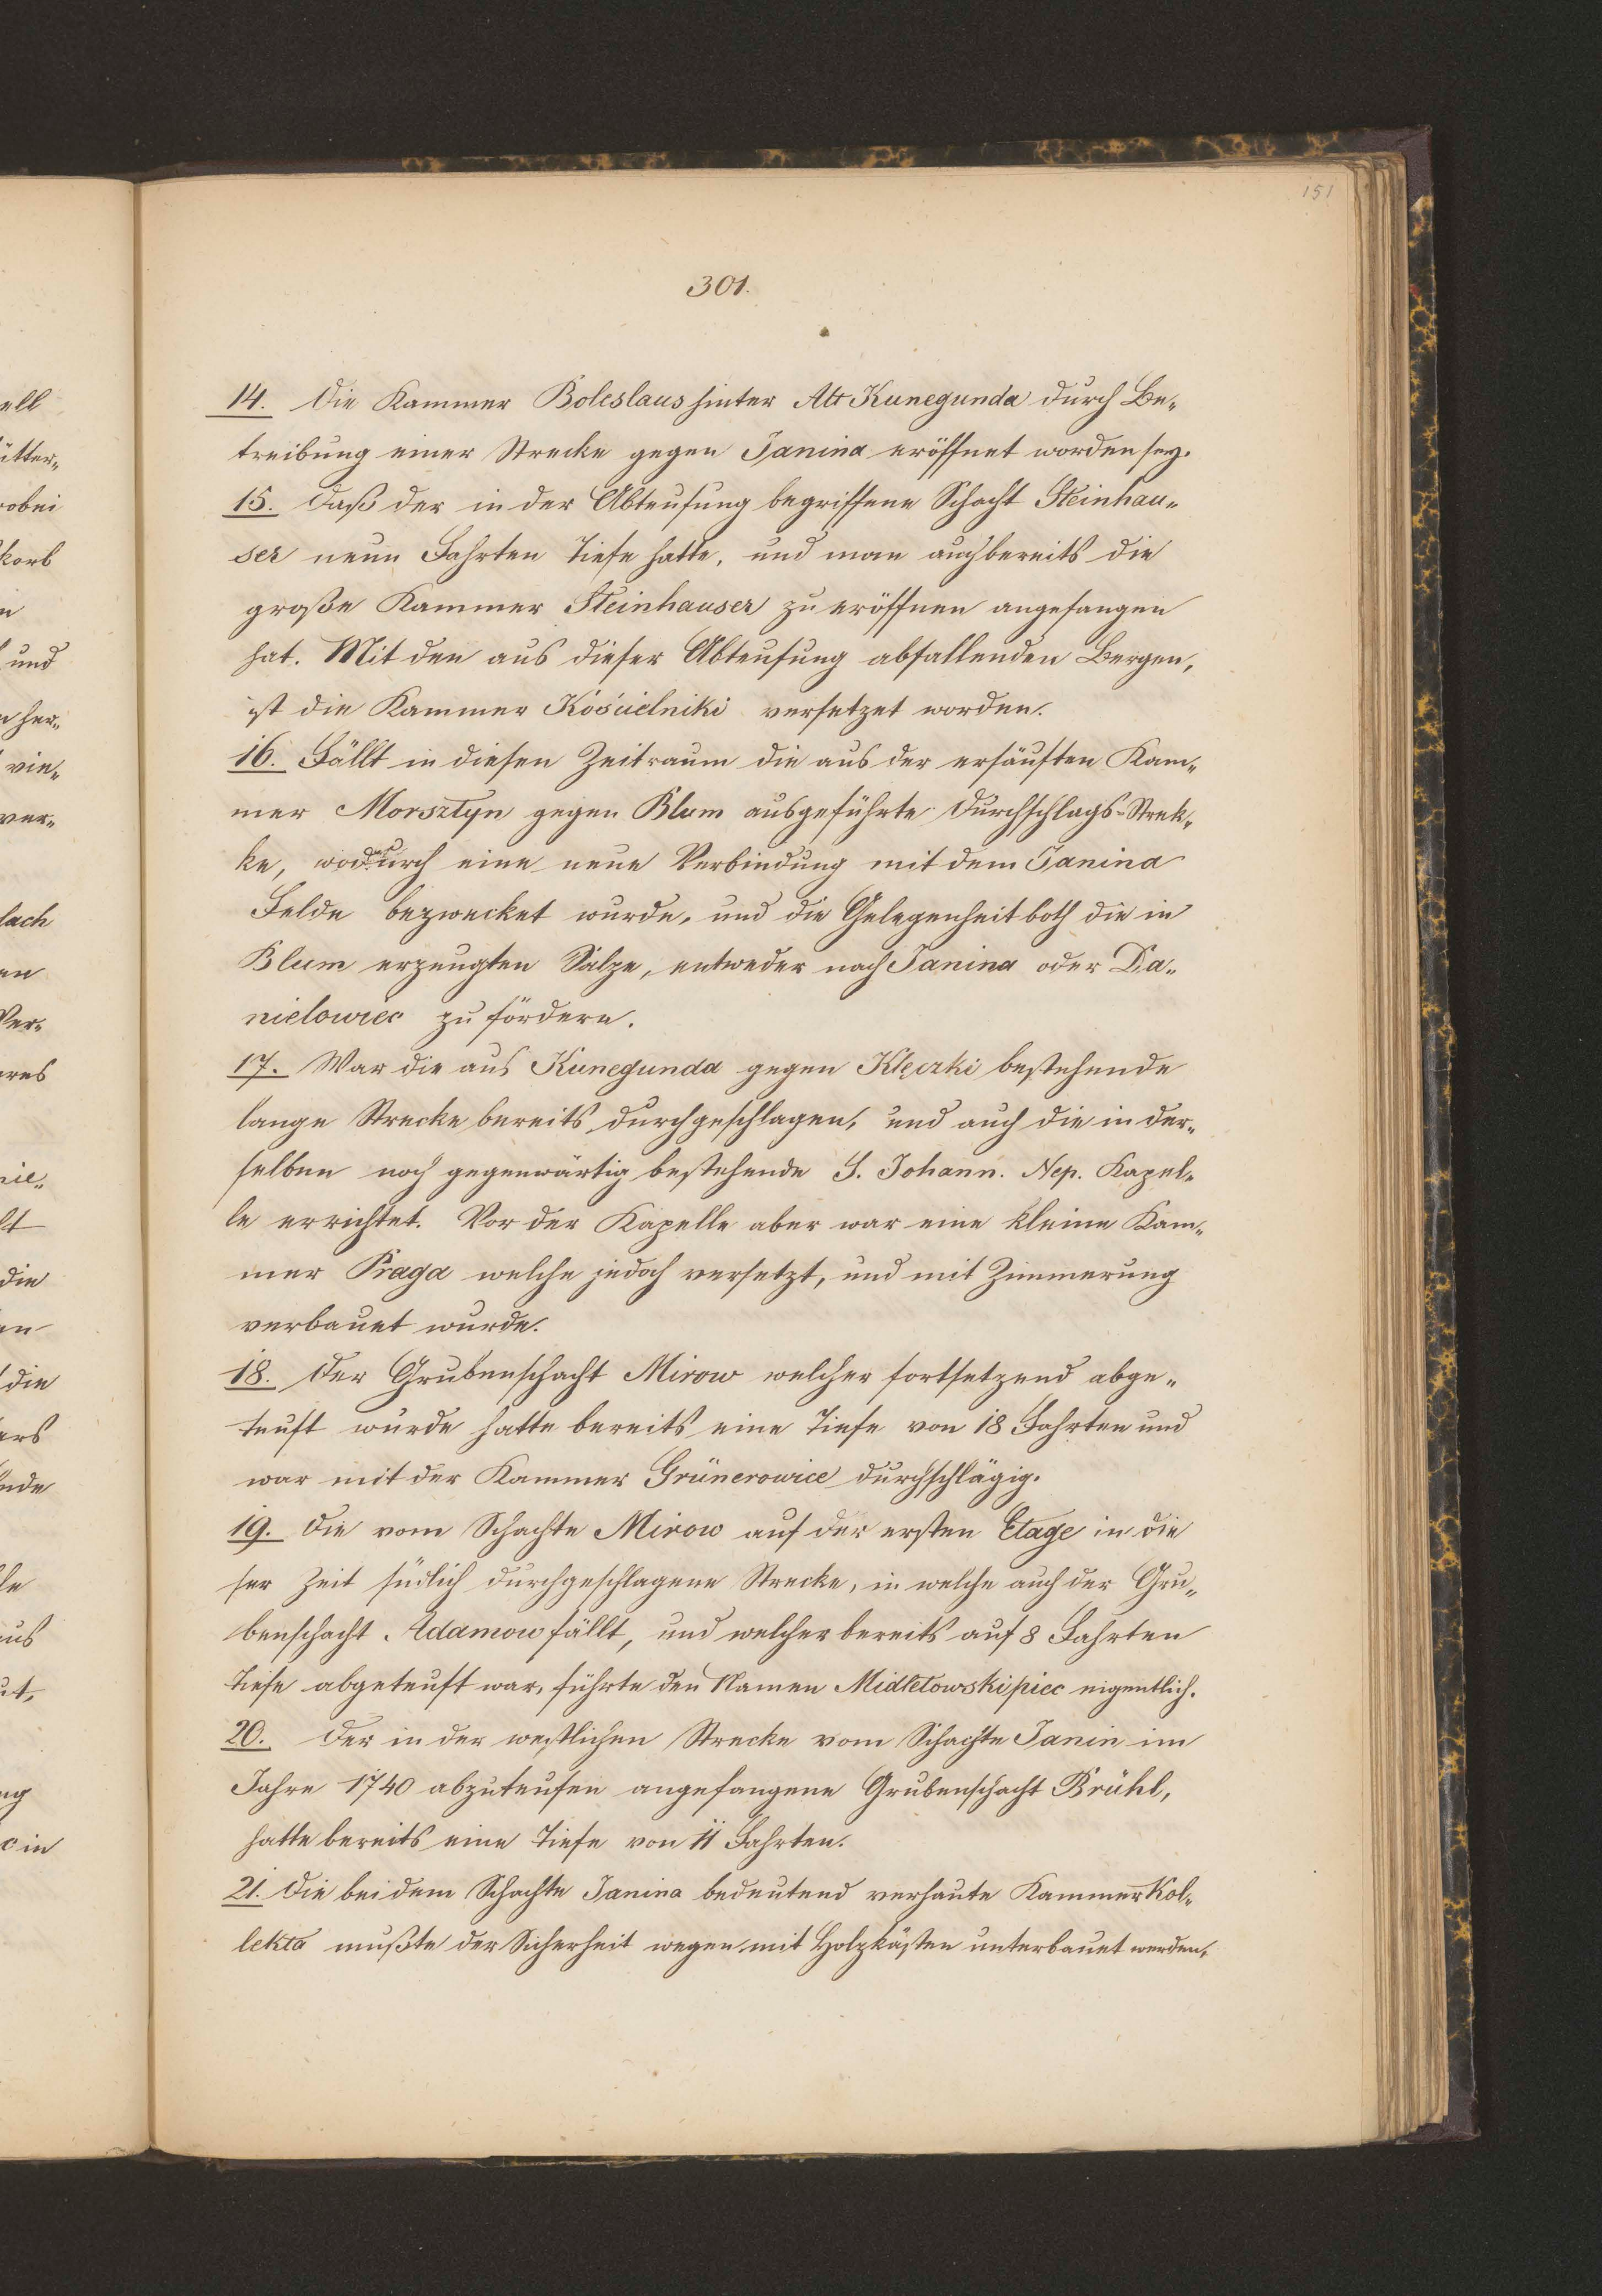 151
301.
14. Die Kammer Boleslaus hinter Alt Kunegunda durch Be-
treibung einer Strecke gegen Janina eröffnet worden sey.
15. Daß der in der Abteufung begriffene Schacht Steinhau-
ser neun Fahrten Tiefe hatte, und man auch bereits die
große Kammer Steinhauser zu eröffnen angefangen
hat. Mit den aus dieser Abteufung abfallenden Bergen,
ist die Kammer Kościelniki versetzet worden.
16. Fällt in diesen Zeitraum die aus der ersäuften Kam-
mer Morsztyn gegen Blum ausgeführte Durchschlags-Strek-
ke, wodurch eine neue Verbindung mit dem Janina
Felde bezwecket wurde, und die Gelegenheit both die in
Blum erzeugten Salze, entweder nach Janina oder Da-
nielowiec zu fördern.
17. War die aus Kunegunda gegen Klęczki bestehende
lange Strecke bereits durchgeschlagen, und auch die in der-
selben noch gegenwärtig bestehende S. Johann. Nep. Kapel-
le errichtet. Vor der Kapelle aber war eine kleine Kam-
mer Praga welche jedoch versetzt, und mit Zimmerung
verbauet wurde.
18. Der Grubenschacht Mirow welcher fortsetzend abge-
teuft wurde hatte bereits eine Tiefe von 18 Fahrten und
war mit der Kammer Grünerowice durchschlägig.
19. Die vom Schachte Mirow auf der ersten Etage in die
ser Zeit südlich durchgeschlagene Strecke, in welche auch der Gru-
benschacht Adamow fällt, und welcher bereits auf 8 Fahrten
Tiefe abgeteuft war, führte den Namen Midletowskipiec eigentlich.
20. Der in der westlichen Strecke vom Schachte Janin im
Jahre 1740 abzuteufen angefangene Grubenschacht Brühl,
hatte bereits eine Tiefe von 11 Fahrten.
21. Die bei dem Schachte Janina bedeutend verhaute Kammer Kol-
lekta mußte der Sicherheit wegen mit Holzkästen unterbauet werden,